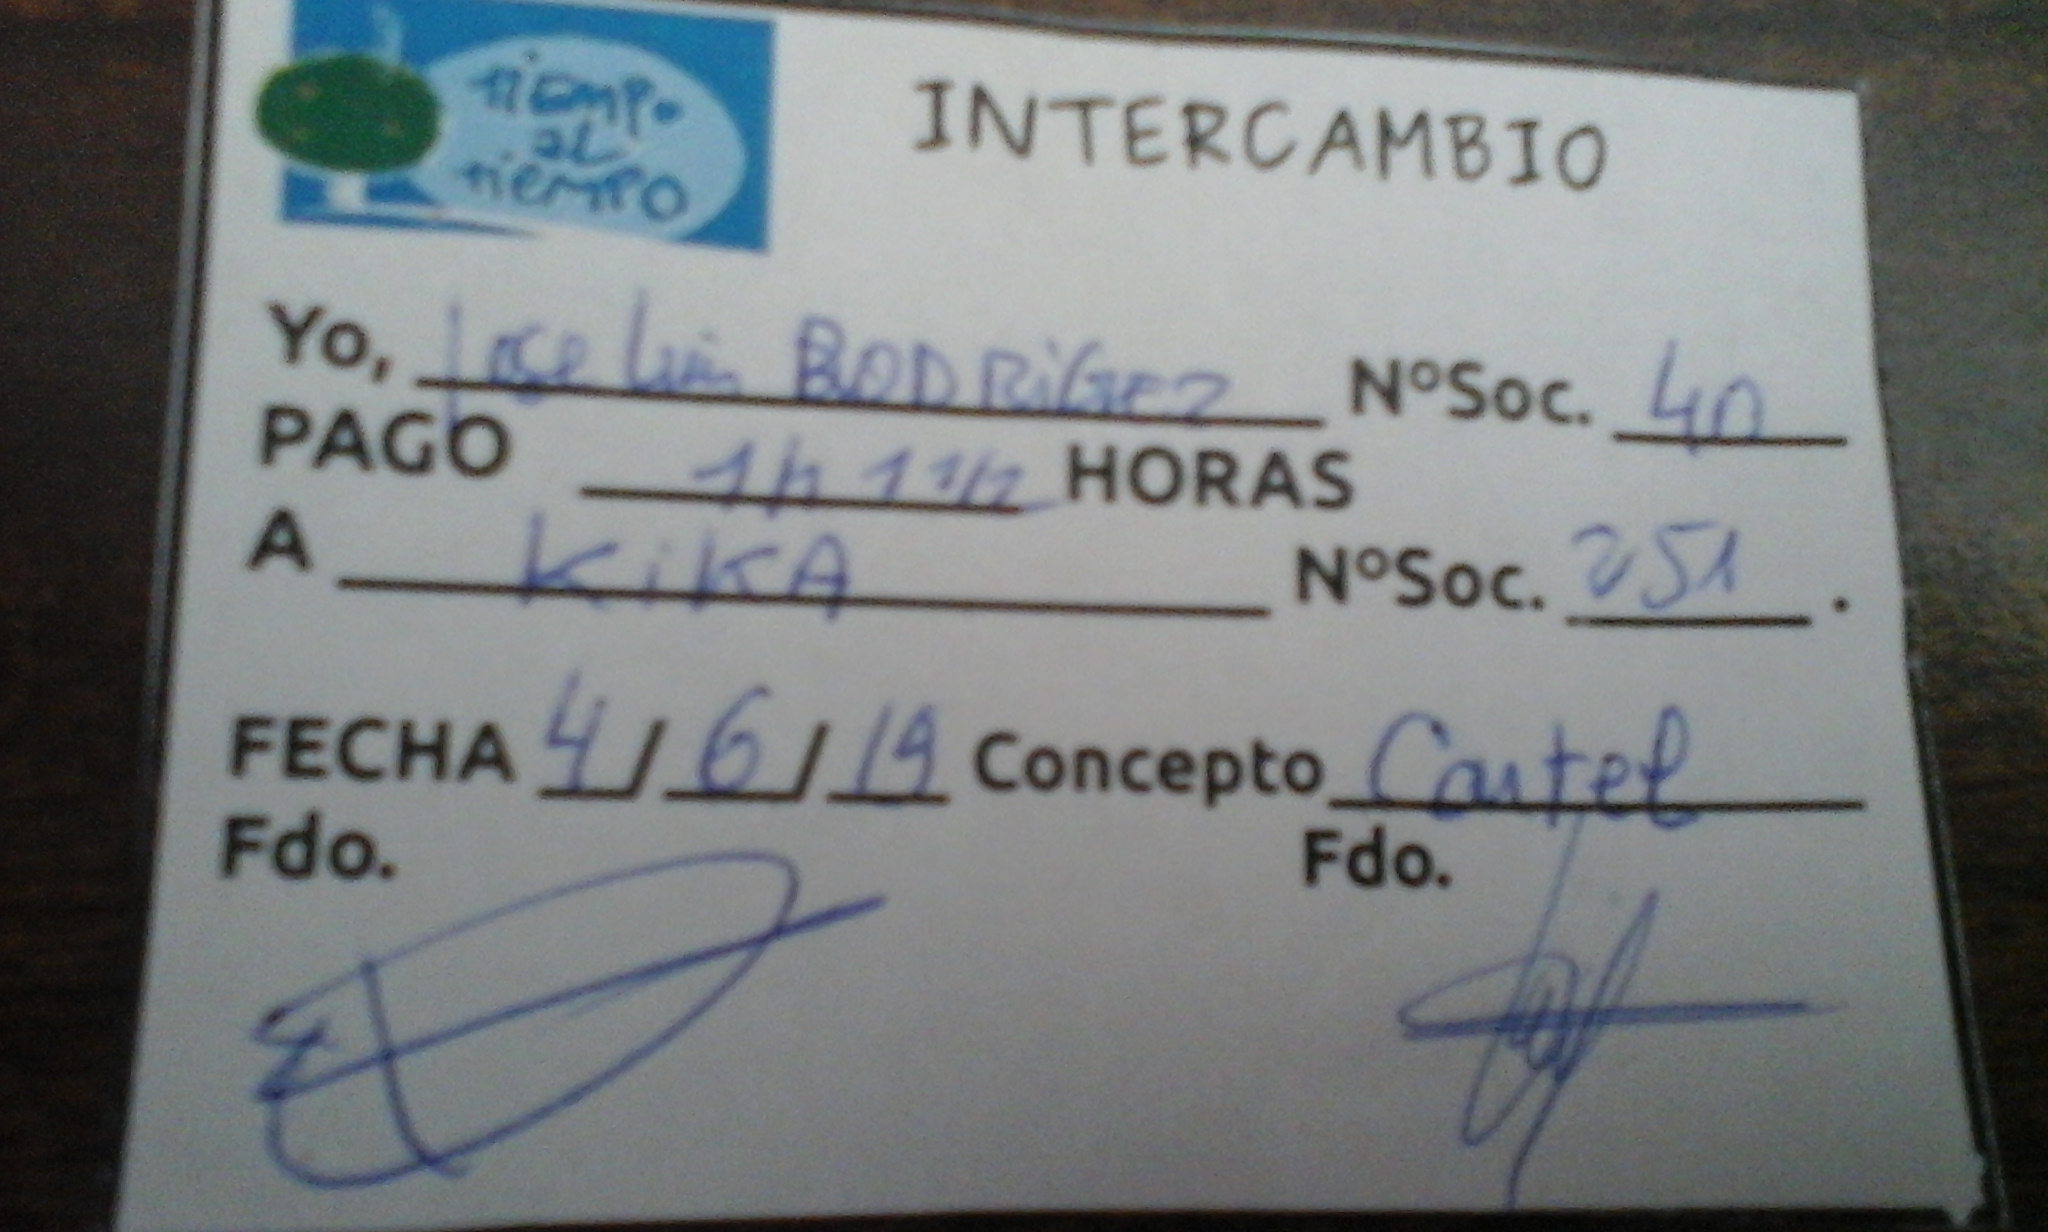 tiempo
al
tiempo
INTERCAMBIO
Yo, Jose Luis RODRiGEZ NºSoc. 40
PAGO 1h 1 1/2 HORAS
A KiKA NºSoc. 251 .
FECHA 4 / 6 / 19 Concepto Cartel
Fdo. Fdo.